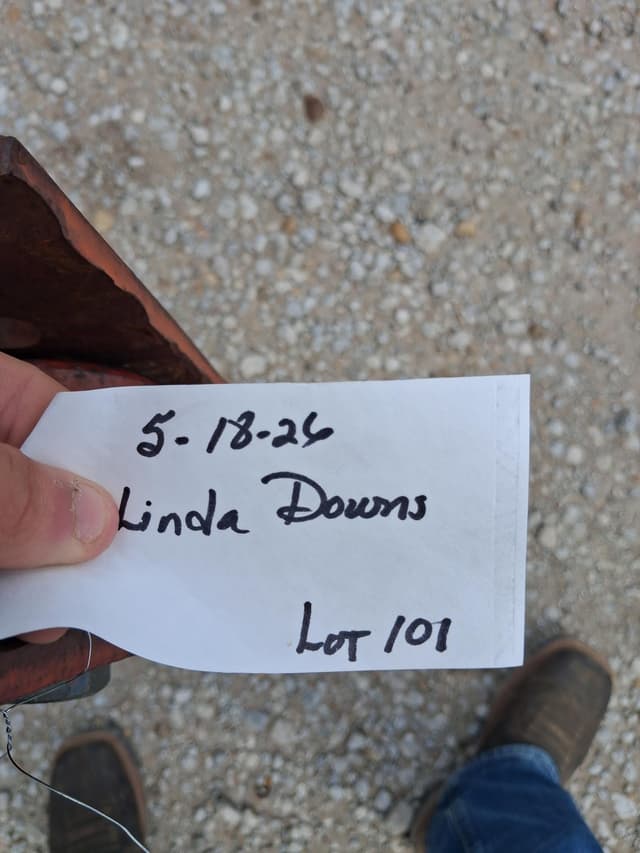 5-18-26
Linda Downs
Lot 101